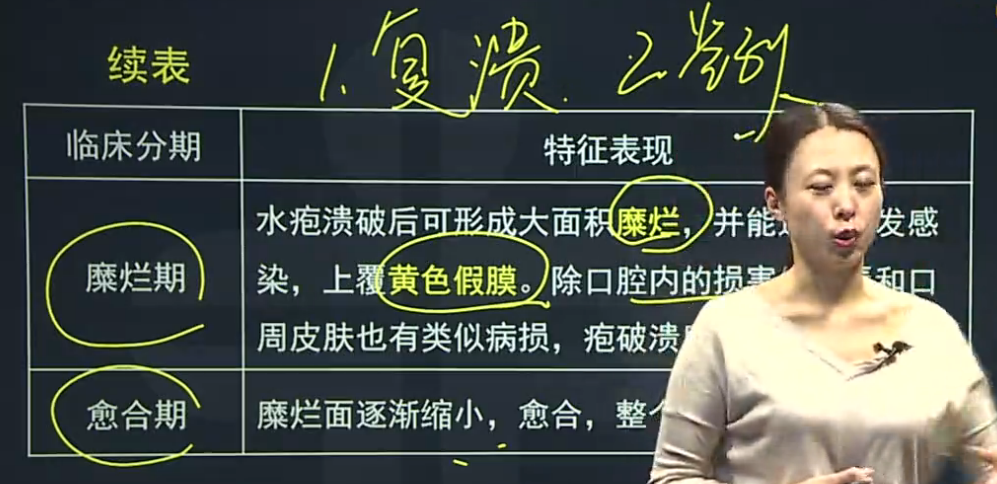 续表
1.复溃. 2.
临床分期
特征表现
糜烂期
水疱溃破后可形成大面积糜烂，并能 发感
染，上覆黄色假膜。除口腔内的损 和口
周皮肤也有类似病损，疱破溃
愈合期
糜烂面逐渐缩小，愈合，整